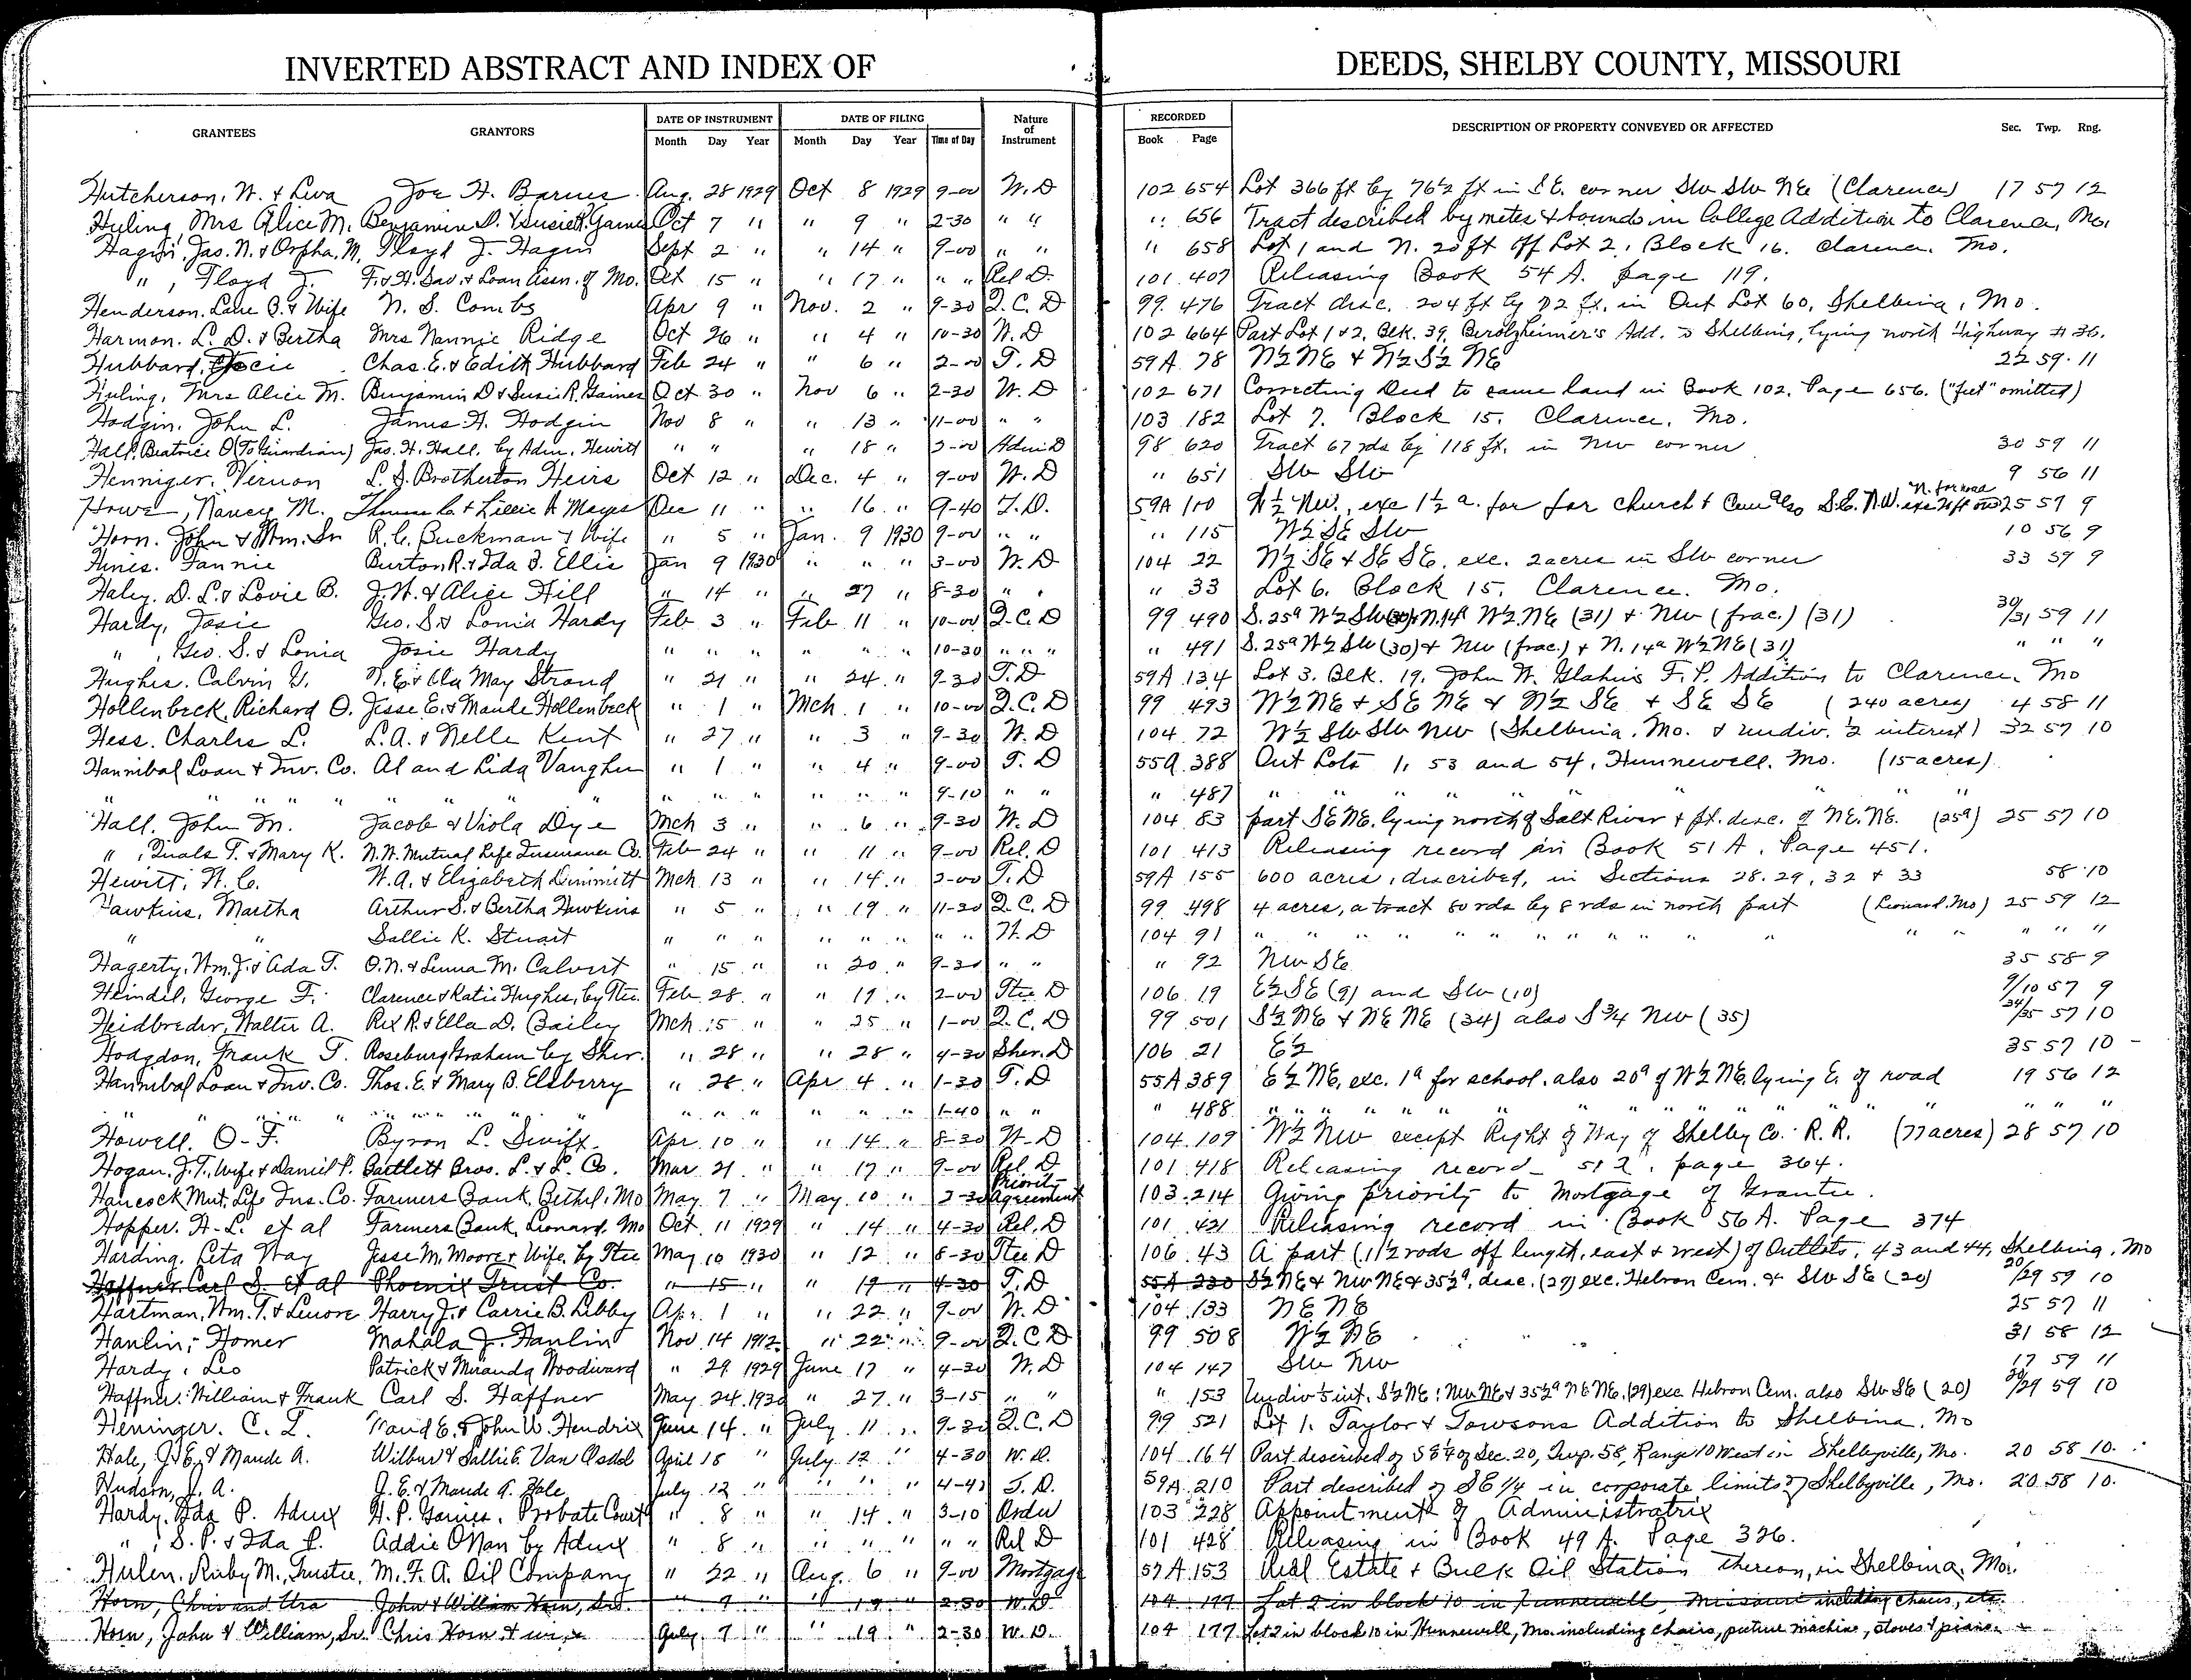 INVERTED ABSTRACT AND INDEX OF DEEDS, SHELBY COUNTY, MISSOURI
GRANTEES GRANTORS DATE OF INSTRUMENT DATE OF FILING Nature of Instrument RECORDED DESCRIPTION OF PROPERTY CONVEYED OR AFFECTED Sec. Twp. Rng.
Month Day Year Month Day Year Time of Day Book Page
Hutcherson, W. & Leva Joe H. Barnes Aug. 28 1929 Oct 8 1929 9-00 W. D 102 654 Lot 366 ft by 76½ ft in S E. corner SW SW NE (Clarence) 17 57 12
Huling, Mrs Alice M. Benjamin D. & Susie R. Gaines Oct 7 " " 9 " 2-30 " " " 656 Tract described by metes & bounds in College Addition to Clarence, Mo.
Hagin, Jas. N. & Orpha, M. Floyd J. Hagin Sept 2 " " 14 " 9-00 " " " 658 Lot 1 and N. 20 ft off Lot 2, Block 16. Clarence. Mo.
" , Floyd J. F. & H. Sav. & Loan Assn. of Mo. Oct 15 " " 17 " " " Rel D. 101 407 Releasing Book 54 A. page 119.
Henderson. Lane B. & Wife N. S. Combs Apr 9 " Nov. 2 " 9-30 Q. C. D 99. 476 Tract desc. 204 ft by 72 ft. in Out Lot 60, Shelbina, Mo.
Harmon. L. D. & Bertha Mrs Nannie Ridge Oct 26 " " 4 " 10-30 W. D 102 664 Part Lot 1 & 2, Blk. 39, Berolzheimer's Add. to Shelbina, lying north Highway # 36.
Hubbard, Chas. E. & Edith Hubbard Feb 24 " " 6 " 2-00 T. D 59A 78 N½ NE & N½ S½ NE 22 59 11
Huling, Mrs Alice M. Benjamin D & Susie R. Gaines Oct 30 " Nov 6 " 2-30 W. D 102 671 Correcting Deed to same land in Book 102, Page 656. ("feet" omitted)
Hodgin. John L. James H. Hodgin Nov 8 " " 13 " 11-00 " " 103 182 Lot 7. Block 15. Clarence. Mo.
Hall, Beatrice O (To Guardian) Jas. H. Hall, by Adm. Hewitt " " " 18 " 2-00 Adm. D 98 620 Tract 67 rds by 118 ft. in NW corner 30 59 11
Henniger. Vernon L. S. Brotherton Heirs Oct 12 " Dec. 4 " 9-00 W. D " 651 SW SW 9 56 11
Howe, Nancy M. Thomas C. & Lillie A Mayes Dec 11 " " 16 " 9-40 T. D. 59A 100 N½ NW., exc 1½ a. for church & Cem also S.E. N.W. 25 59 9
Horn. John & Wm. Sr R. C. Buckman & Wife " 5 " Jan. 9 1930 9-00 " " " 115 W½ SE SW 10 56 9
Hines. Fannie Burton R. & Ida B. Ellis Jan 9 1930 " " " 3-00 W. D 104 22 N½ SE & SE SE. exc. 2 acres in SW corner 33 59 9
Haley. D. L. & Lovie B. J. W. & Alice Hill " 14 " " 27 " 8-30 " " " 33 Lot 6. Block 15. Clarence. Mo.
Hardy, Josie Geo. S. & Lonia Hardy Feb 3 " Feb 11 " 10-00 Q. C. D 99 490 S. 25ª W½ SW (30) & N. 14ª W½ NE (31) & NW (frac.) (31) 30/31 59 11
" , Geo. S. & Lonia Josie Hardy " " " " " " 10-30 " " " " 491 S. 25ª W½ SW (30) & NW (frac.) & N. 14ª W½ NE (31) " " "
Hughes. Calvin V. May Stroud " 21 " " 24 " 9-30 T. D 59A 134 Lot 3. Blk. 19, John W. Glahn's F. P. Addition to Clarence, Mo
Hollenbeck, Richard O. Jesse E. & Maude Hollenbeck " 1 " Mch 1 " 10-00 Q. C. D 99 493 W½ NE & SE NE & N½ SE & SE SE (240 acres) 4 58 11
Hess. Charles L. L. A. & Nelle Kent " 27 " " 3 " 9-30 W. D 104 72 W½ SW SW NW (Shelbina. Mo. & undiv. ½ interest) 32 57 10
Hannibal Loan & Inv. Co. Al and Lida Vaughn " 1 " " 4 " 9-00 T. D 55A 388 Out Lots 1, 53 and 54, Hunnewell. Mo. (15 acres)
" " " " " " " " " " " " " " 9-10 " " " 487 " " " " " " "
Hall, John M. Jacob & Viola Dye Mch 3 " " 6 " 9-30 W. D 104 83 part SE NE. lying north of Salt River & pt. desc. of NE. NE. (25ª) 25 57 10
" , Quals T. & Mary K. N. W. Mutual Life Insurance Co. Feb 24 " " 11 " 9-00 Rel. D 101 413 Releasing record in Book 51 A. Page 451.
Hewitt, H. C. W. A. & Elizabeth Dimmitt Mch 13 " " 14 " 2-00 T. D 59A 155 600 acres, described, in Sections 28. 29, 32 & 33 58 10
Hawkins, Martha Arthur S. & Bertha Hawkins " 5 " " 19 " 11-20 Q. C. D 99 498 4 acres, a tract 80 rds by 8 rds in north part (Leonard. Mo) 25 59 12
" " Sallie K. Stuart " " " " " " " " W. D 104 91 " " " " " " " " " " " " " " " "
Hagerty, Wm. J. & Ada T. O. N. & Lenna M. Calvert " 15 " " 20 " 9-30 " " " 92 NW SE 35 58 9
Heindel, George F. Clarence & Katie Hughes, by Ttee. Feb. 28 " " 19 " 2-00 Ttee D 106 19 E½ SE (9) and SW (10) 9/10 57 9
Heidbreder, Walter A. Rex R. & Ella D. Bailey Mch 15 " " 25 " 1-00 Q. C. D 99 501 S½ NE & NE NE (34) also S¾ NW (35) 34/35 57 10
Hodgdon, Frank T. Roseburg Graham by Sher. " 28 " " 28 " 4-30 Sher. D 106 21 E½ 35 57 10
Hannibal Loan & Inv. Co. Thos. E. & Mary B. Elsberry " 28 " Apr 4 " 1-30 T. D 55A 389 E½ NE, exc. 1ª for school. also 20ª of W½ NE. lying E. of road 19 56 12
" " " " " " " " " " " " " 1-40 " " " 488 " " " " " " " " " " "
Howell. O. F. Byron L. Swift Apr 10 " " 14 " 8-30 W. D 104 109 W½ NW except Right of Way of Shelby Co. R. R. (77 acres) 28 57 10
Hogan. J. T., Wife & Daniel P. Bartlett Bros. L. & L. Co. Mar 21 " " 17 " 9-00 Rel. D 101 418 Releasing record page 364.
Hancock Mut. Life Ins. Co. Farmers Bank, Bethel, Mo May 7 " May 10 " 2-30 Priority Agreement 103 214 Giving priority to Mortgage of Grantee.
Hopper. H. L. et al Farmers Bank, Leonard, Mo Oct 11 1929 " 14 " 4-30 Rel. D 101 421 Releasing record in Book 56 A. Page 374
Harding, Leta Way Jesse M. Moore & Wife, by Ttee May 10 1930 " 12 " 8-30 Ttee D 106 43 A part (11½ rods off length, east & west) of Outlots, 43 and 44, Shelbina, Mo
Haffner Carl S. et al Phoenix Trust Co. " 15 " " 19 " 4-30 T. D 55A 230 S½ NE & NW NE & 35½ª. desc. (29) exc. Hebron Cem. & SW SE (20) 20/29 59 10
Hartman, Wm. T. & Lenore Harry J. & Carrie B. Libby Apr. 1 " " 22 " 9-00 W. D 104 133 NE NE 25 57 11
Hanlin, Homer Mahala J. Hanlin Nov 14 1912 " 22 " 9-00 Q. C. D 99 508 W½ NE 31 58 12
Hardy, Leo Patrick & Miranda Woodward " 29 1929 June 17 " 4-30 W. D 104 147 SW NW 17 59 11
Haffner. William & Frank Carl S. Haffner May 24 1930 " 27 " 3-15 " " " 153 Undiv ⅓ int. S½ NE: NW NE & 35½ª NE NE. (29) exc Hebron Cem. also SW SE (20) 20/29 59 10
Heninger. C. L. Maud E. & John W. Hendrix June 14 " July 11 " 9-30 Q. C. D 99 521 Lot 1. Taylor & Towsons Addition to Shelbina. Mo
Hale, J. E. & Maude A. Wilbur & Sallie E. Van Osdol April 18 " July 12 " 4-30 W. D. 104 164 Part described of SE¼ of Sec. 20, Twp. 58, Range 10 West in Shelbyville, Mo. 20 58 10.
Hudson, J. A. J. E. & Maude A. Hale July 12 " " " " 4-40 T. D. 59A 210 Part described of SE 1/4 in corporate limits of Shelbyville, Mo. 20 58 10.
Hardy, Ida P. Admx H. P. Gaines, Probate Court " 8 " " 14 " 3-10 Order 103 228 Appointment of Administratrix
" , S. P. & Ida P. Addie O'Nan by Admx " 8 " " " " " " Rel D 101 428 Releasing in Book 49 A. Page 326.
Hulen. Rixby M., Trustee, M. F. A. Oil Company " 22 " Aug. 6 " 9-00 Mortgage 57A 153 Real Estate & Bulk Oil Station thereon, in Shelbina, Mo.
Horn, Chris and Ura John & William Horn, Sr. " 7 " " 19 " 2-30 W. D. 104 177 Lot 2 in block 10 in Hunnewell, Missouri including chairs, etc.
Horn, John & William, Sr. Chris Horn & wife July 7 " " 19 " 2-30 W. D. 104 177 Lot 2 in block 10 in Hunnewell, Mo. including chairs, picture machine, stoves & piano.